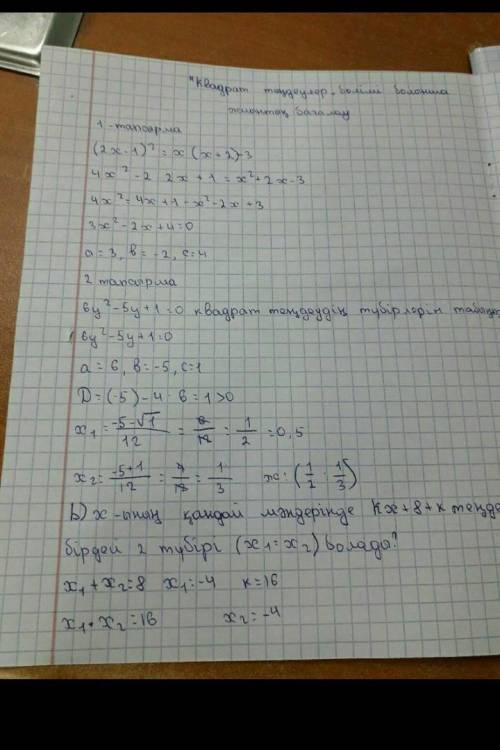 "Квадрат теңдеулер" бөлімі бойынша
жиынтық бағалау
1-тапсырма
(2x-1)² = x(x+2)-3
4x²-2 2x+1=x²+2x-3
4x²-4x+1-x²-2x+3
3x²-2x+4=0
a=3, b=-2, c=4
2 тапсырма
6y²-5y+1=0 квадрат теңдеудің түбірлерін
6y²-5y+1=0
a=6, b=-5, c=1
D=(-5)-4·6=1>0
x₁=-5-√1/12=6/12=1/2=0,5
x₂=-5+1/12=4/12=1/3 ж:(1/2;1/3)
b) x-ының қандай мәндерінде kx+8+k
бірдей 2 түбірі (x₁=x₂) болады?
x₁+x₂=8 x₁=-4 k=16
x₁·x₂=16 x₂=-4